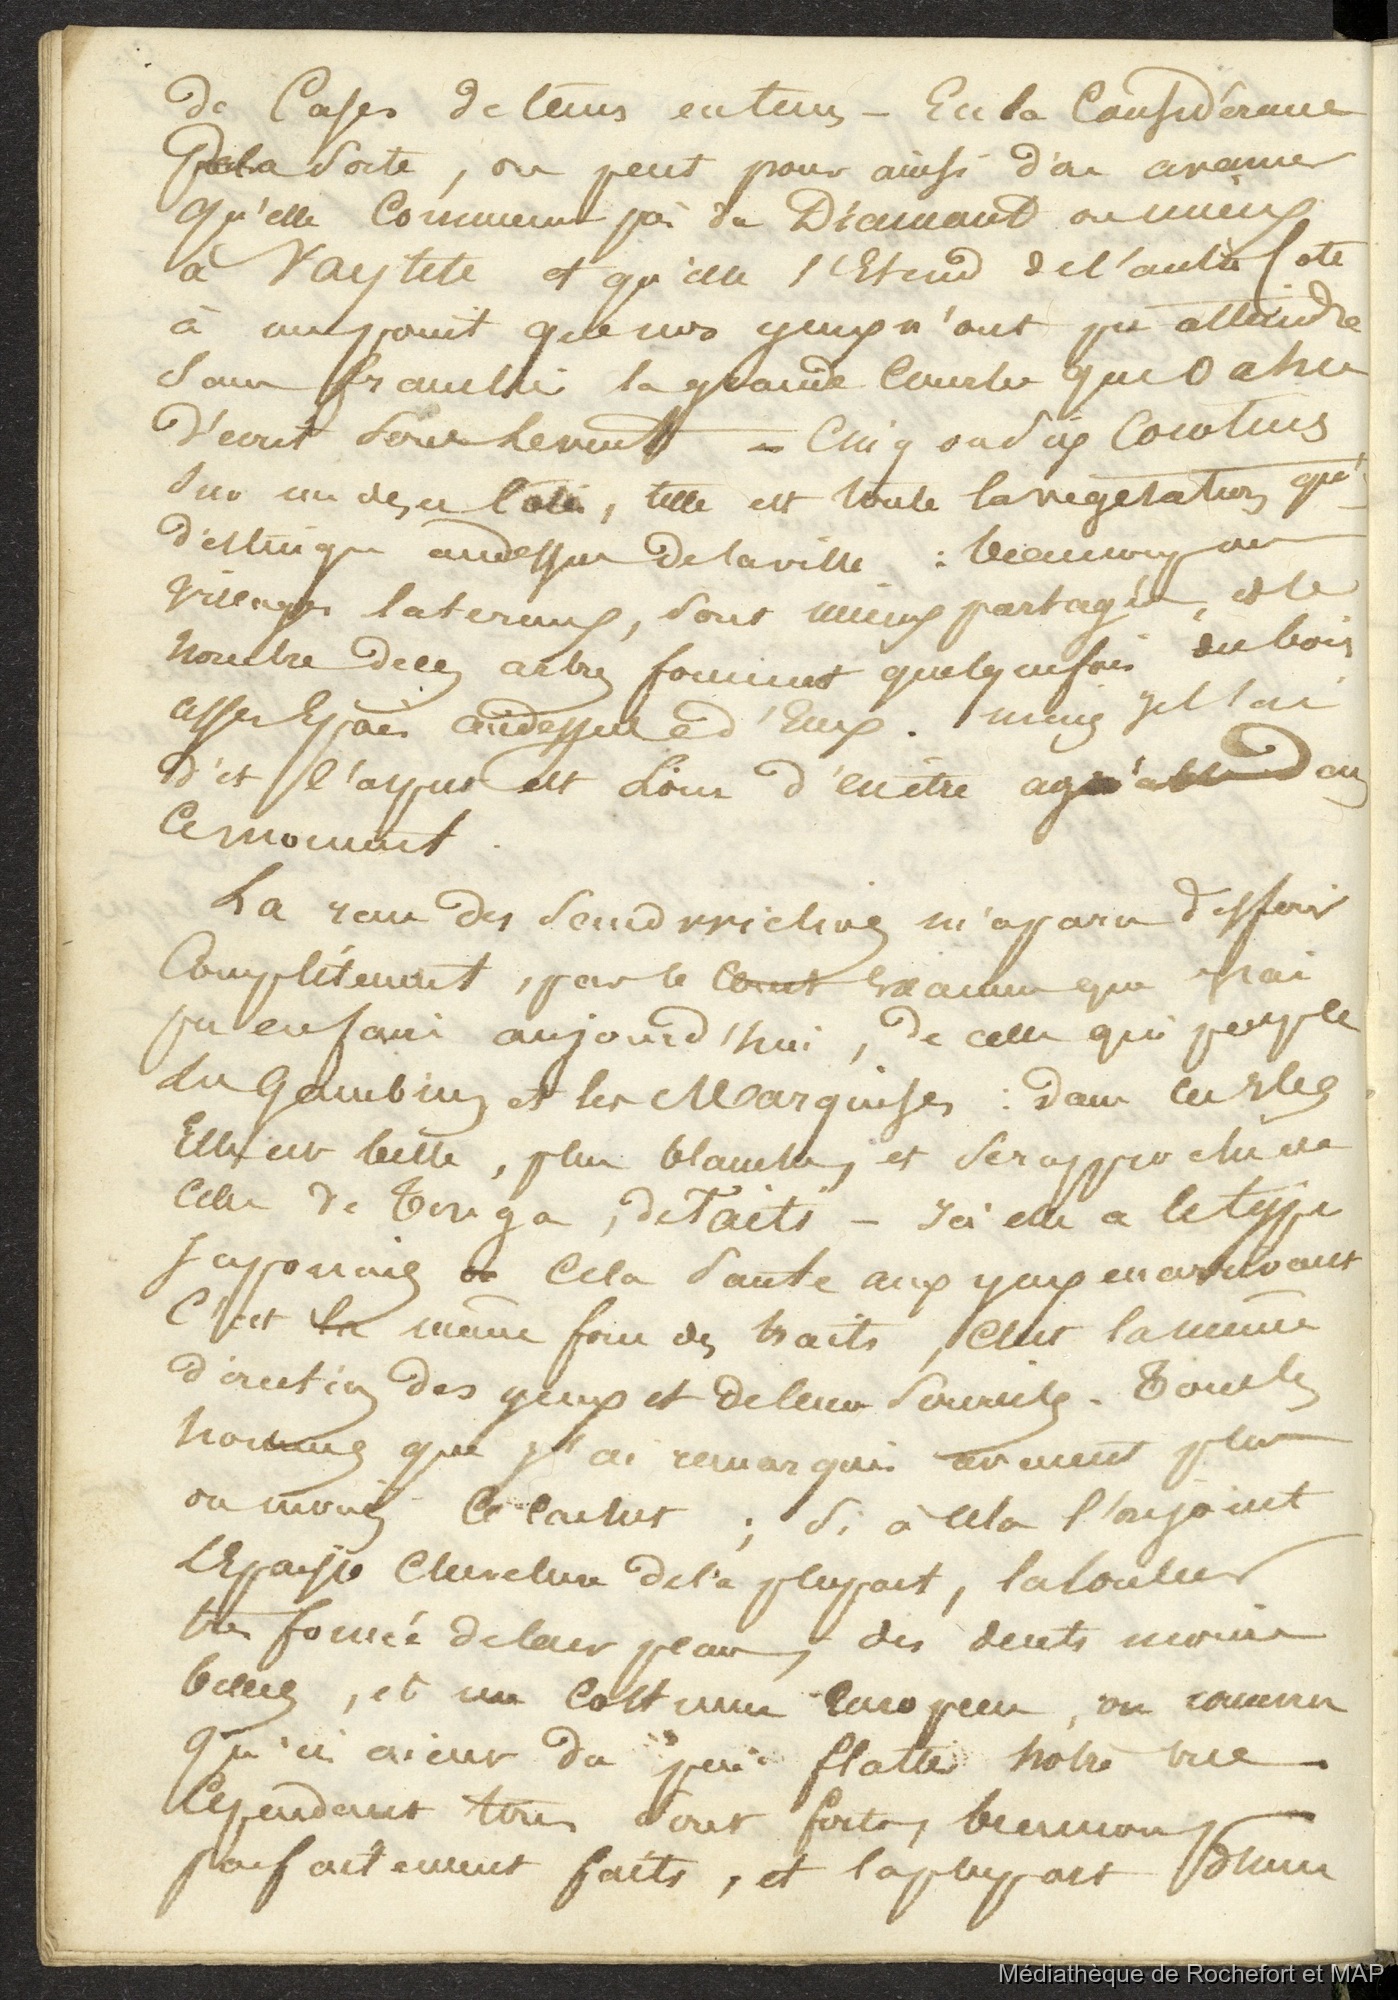 de Cases de tems en tems – En la Considérant
de la sorte, on peut pour ainsi dire avancer
qu'elle Commence par du Diamant ou mieux
à Vaytété et qu'elle s'Etend de l'autre Coté
à un point que nos yeux n'ont pu atteindre
sans franchir la grande Courbe que Oahu
d'ecrit sous le vent – Cinq ou dix Cocotiers
sur un des cotés, telle est toute la végétation qui
distingue au dessus de la ville : beaucoup
villages lateraux, sont mieux partagés, et le
nombre de ces arbres forment quelques fois du bois
assez Epais au dessus d'Eux. mais je l'ai
dit l'aspect est loin d'en être agréable Dans
Ce moment.
La race des Sandwichiens m'a paru differer
Complétement, par le Examen que j'ai
pu en faire aujourd'hui, de celle qui peuple
les Gambiers et les Marquises : dans ces Iles
Elle est belle, plus blanche, et se rapproche de
Celle de Tonga, de Taiti – Ici elle a le type
Japonais Cela saute aux yeux en arrivant
C'est la même forme des traits, c'est la même
direction des yeux et de leurs sourcils. Tous les
hommes que j'ai remarqués avaient plus
ou moins Ce cachet ; si à cela l'on joint
l'Epaisse Chevelure de la plupart, la couleur
très foncée de leur peau, des dents moins
belles, et un Costume Europeen, on
qu'ici aient du peu flatter notre vue
Cependant tous sont forts,
parfaitement faits, et la plupart d'une